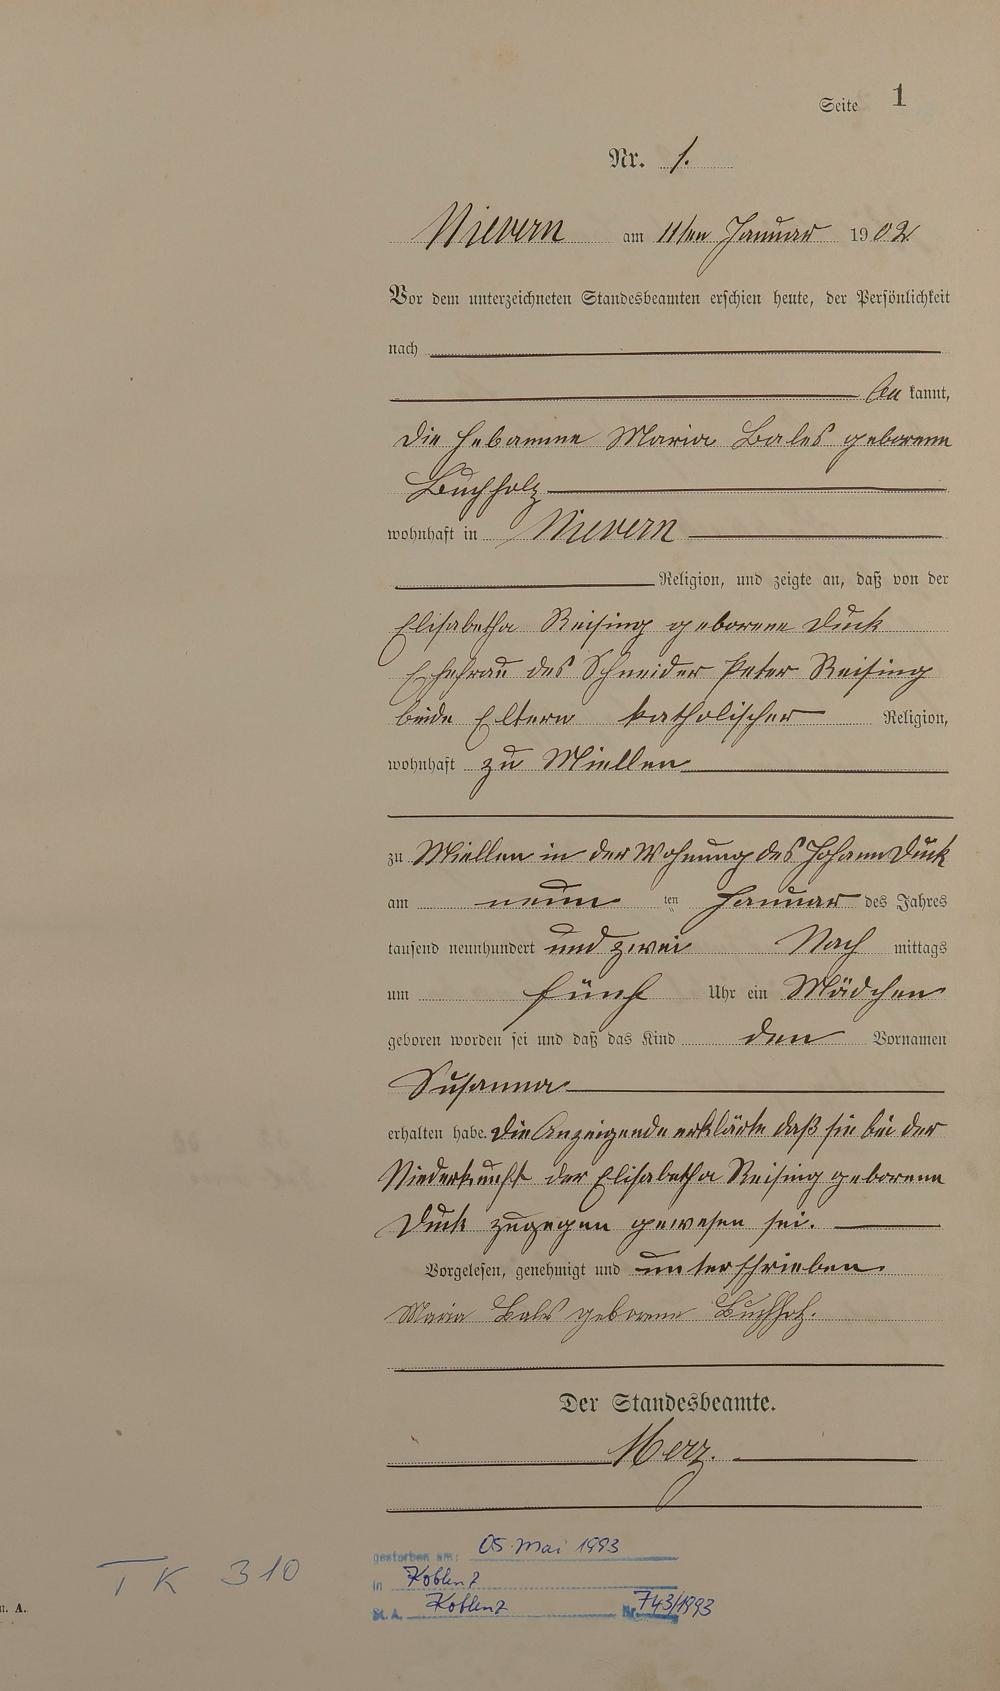 Seite 1
Nr. 1.
Nievern am 11ten Januar 1902
Vor dem unterzeichneten Standesbeamten erschien heute, der Persönlichkeit
nach
be kannt,
die Hebamme Maria Bales geborenn
Buchholz
wohnhaft in Nievern
Religion, und zeigte an, daß von der
Elisabetha Reising geborene Duck
Ehefrau des Schneider Peter Reising
beide Eltern katholischer Religion,
wohnhaft zu Miellen
zu Miellen in der Wohnung des Johann Duck
am neun ten Januar des Jahres
tausend neunhundert und zwei Nach mittags
um fünf Uhr ein Mädchen
geboren worden sei und daß das Kind den Vornamen
Susanna
erhalten habe. Die Anzeigende erklärte daß sie bei der
Niederkunft der Elisabetha Reising geborenn
Duck zugegen gewesen sei.
Vorgelesen, genehmigt und unterschrieben
Maria Bales geborenn Buchholz.
Der Standesbeamte.
Merz.
gestorben am: 05. Mai 1993
in Koblenz
St. A. Koblenz Nr. 743/1993
TK 310
u. A.